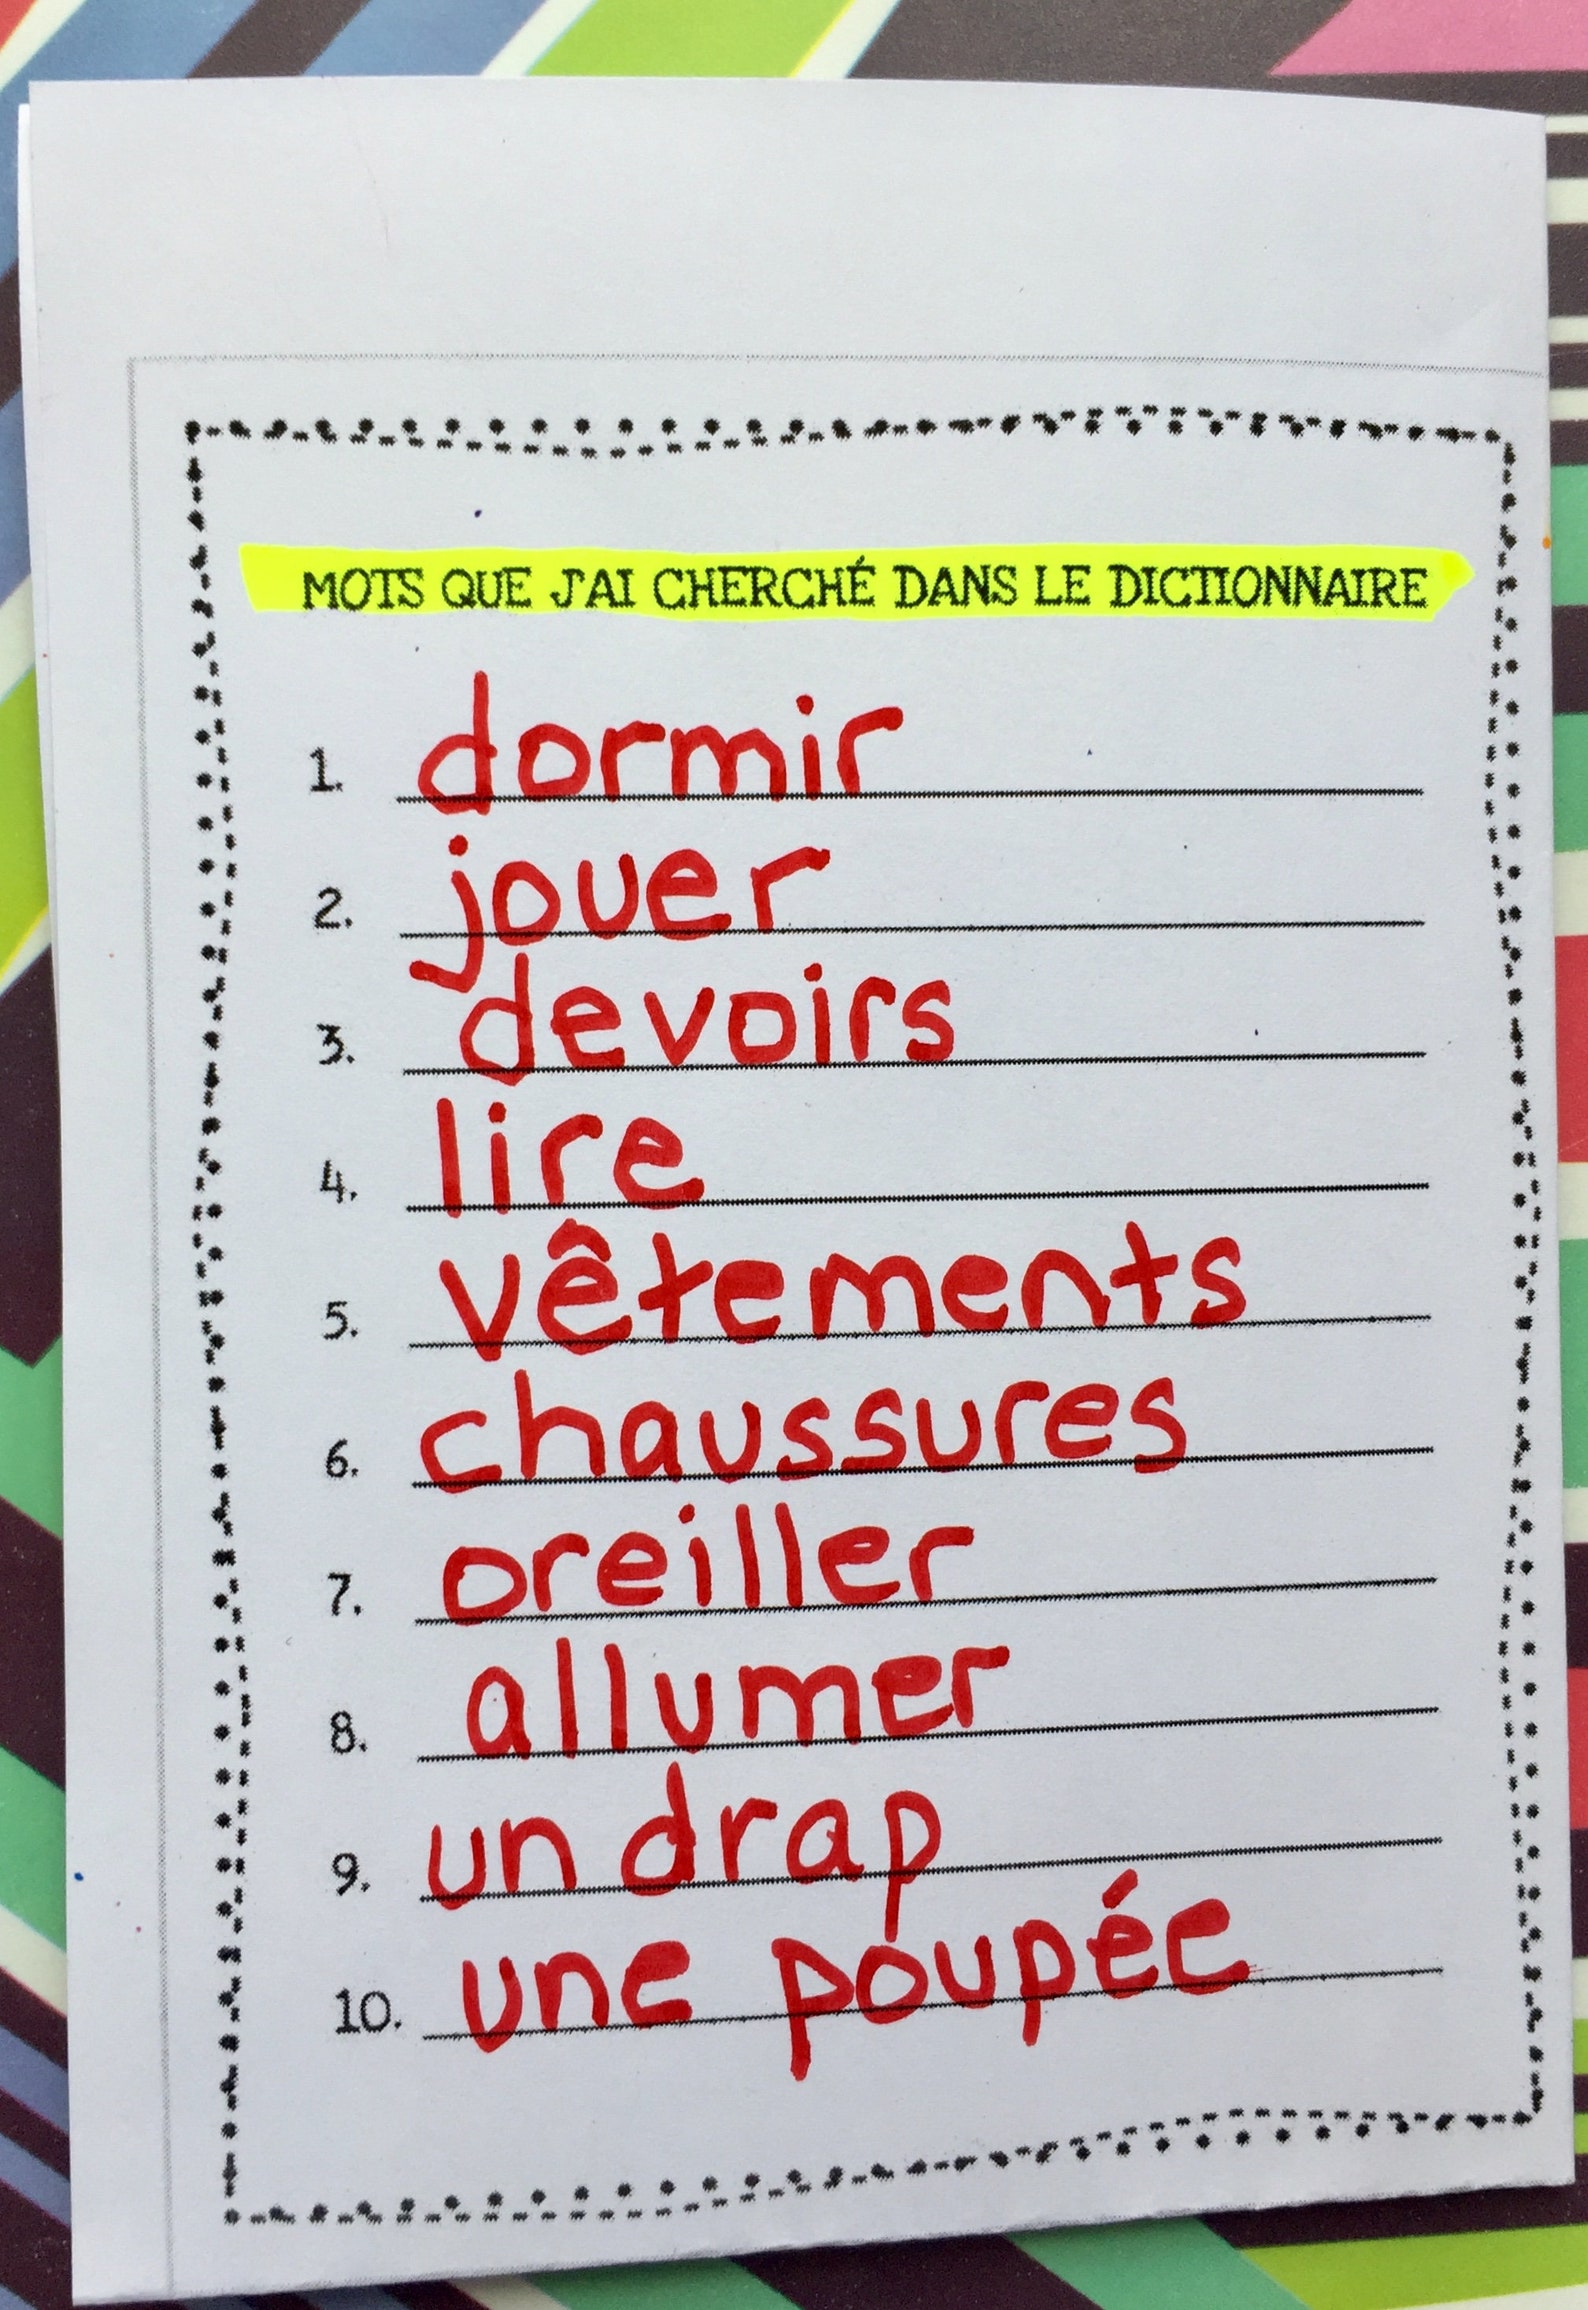 MOTS QUE J'AI CHERCHÉ DANS LE DICTIONNAIRE
1. dormir
2. jouer
3. devoirs
4. lire
5. vêtements
6. chaussures
7. oreiller
8. allumer
9. un drap
10. une poupée